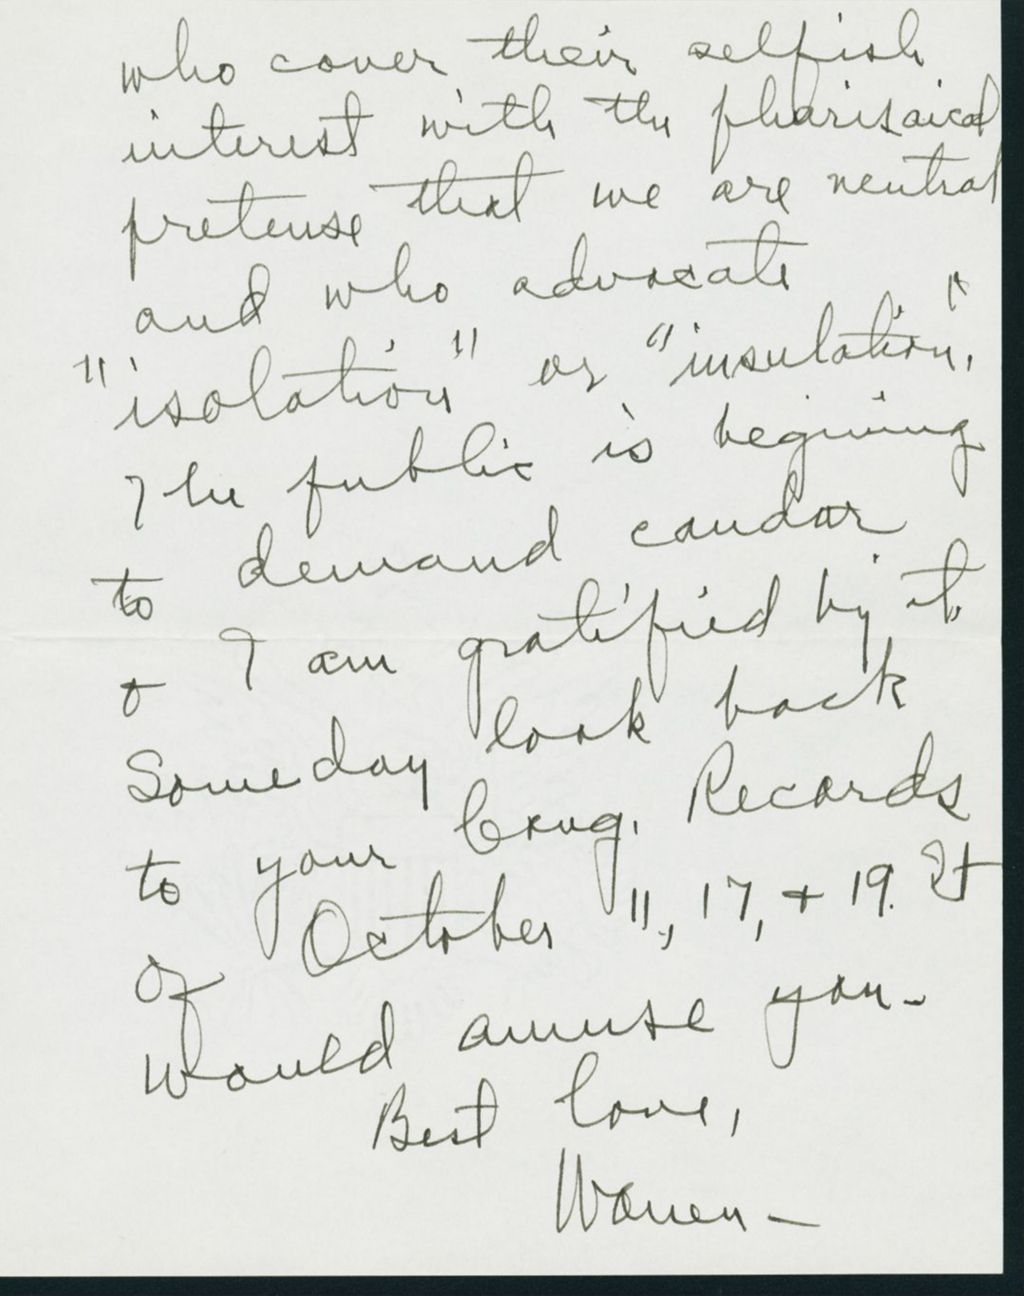 who cover their selfish
interest with the pharisaical
pretense that we are neutral
and who advocate
"isolation" or "insulation."
The public is begining
to demand candor
& I am gratified by it.
Someday look back
to your Cong. Records
of October 11, 17, & 19. It
would amuse you-
Best love,
Warren-